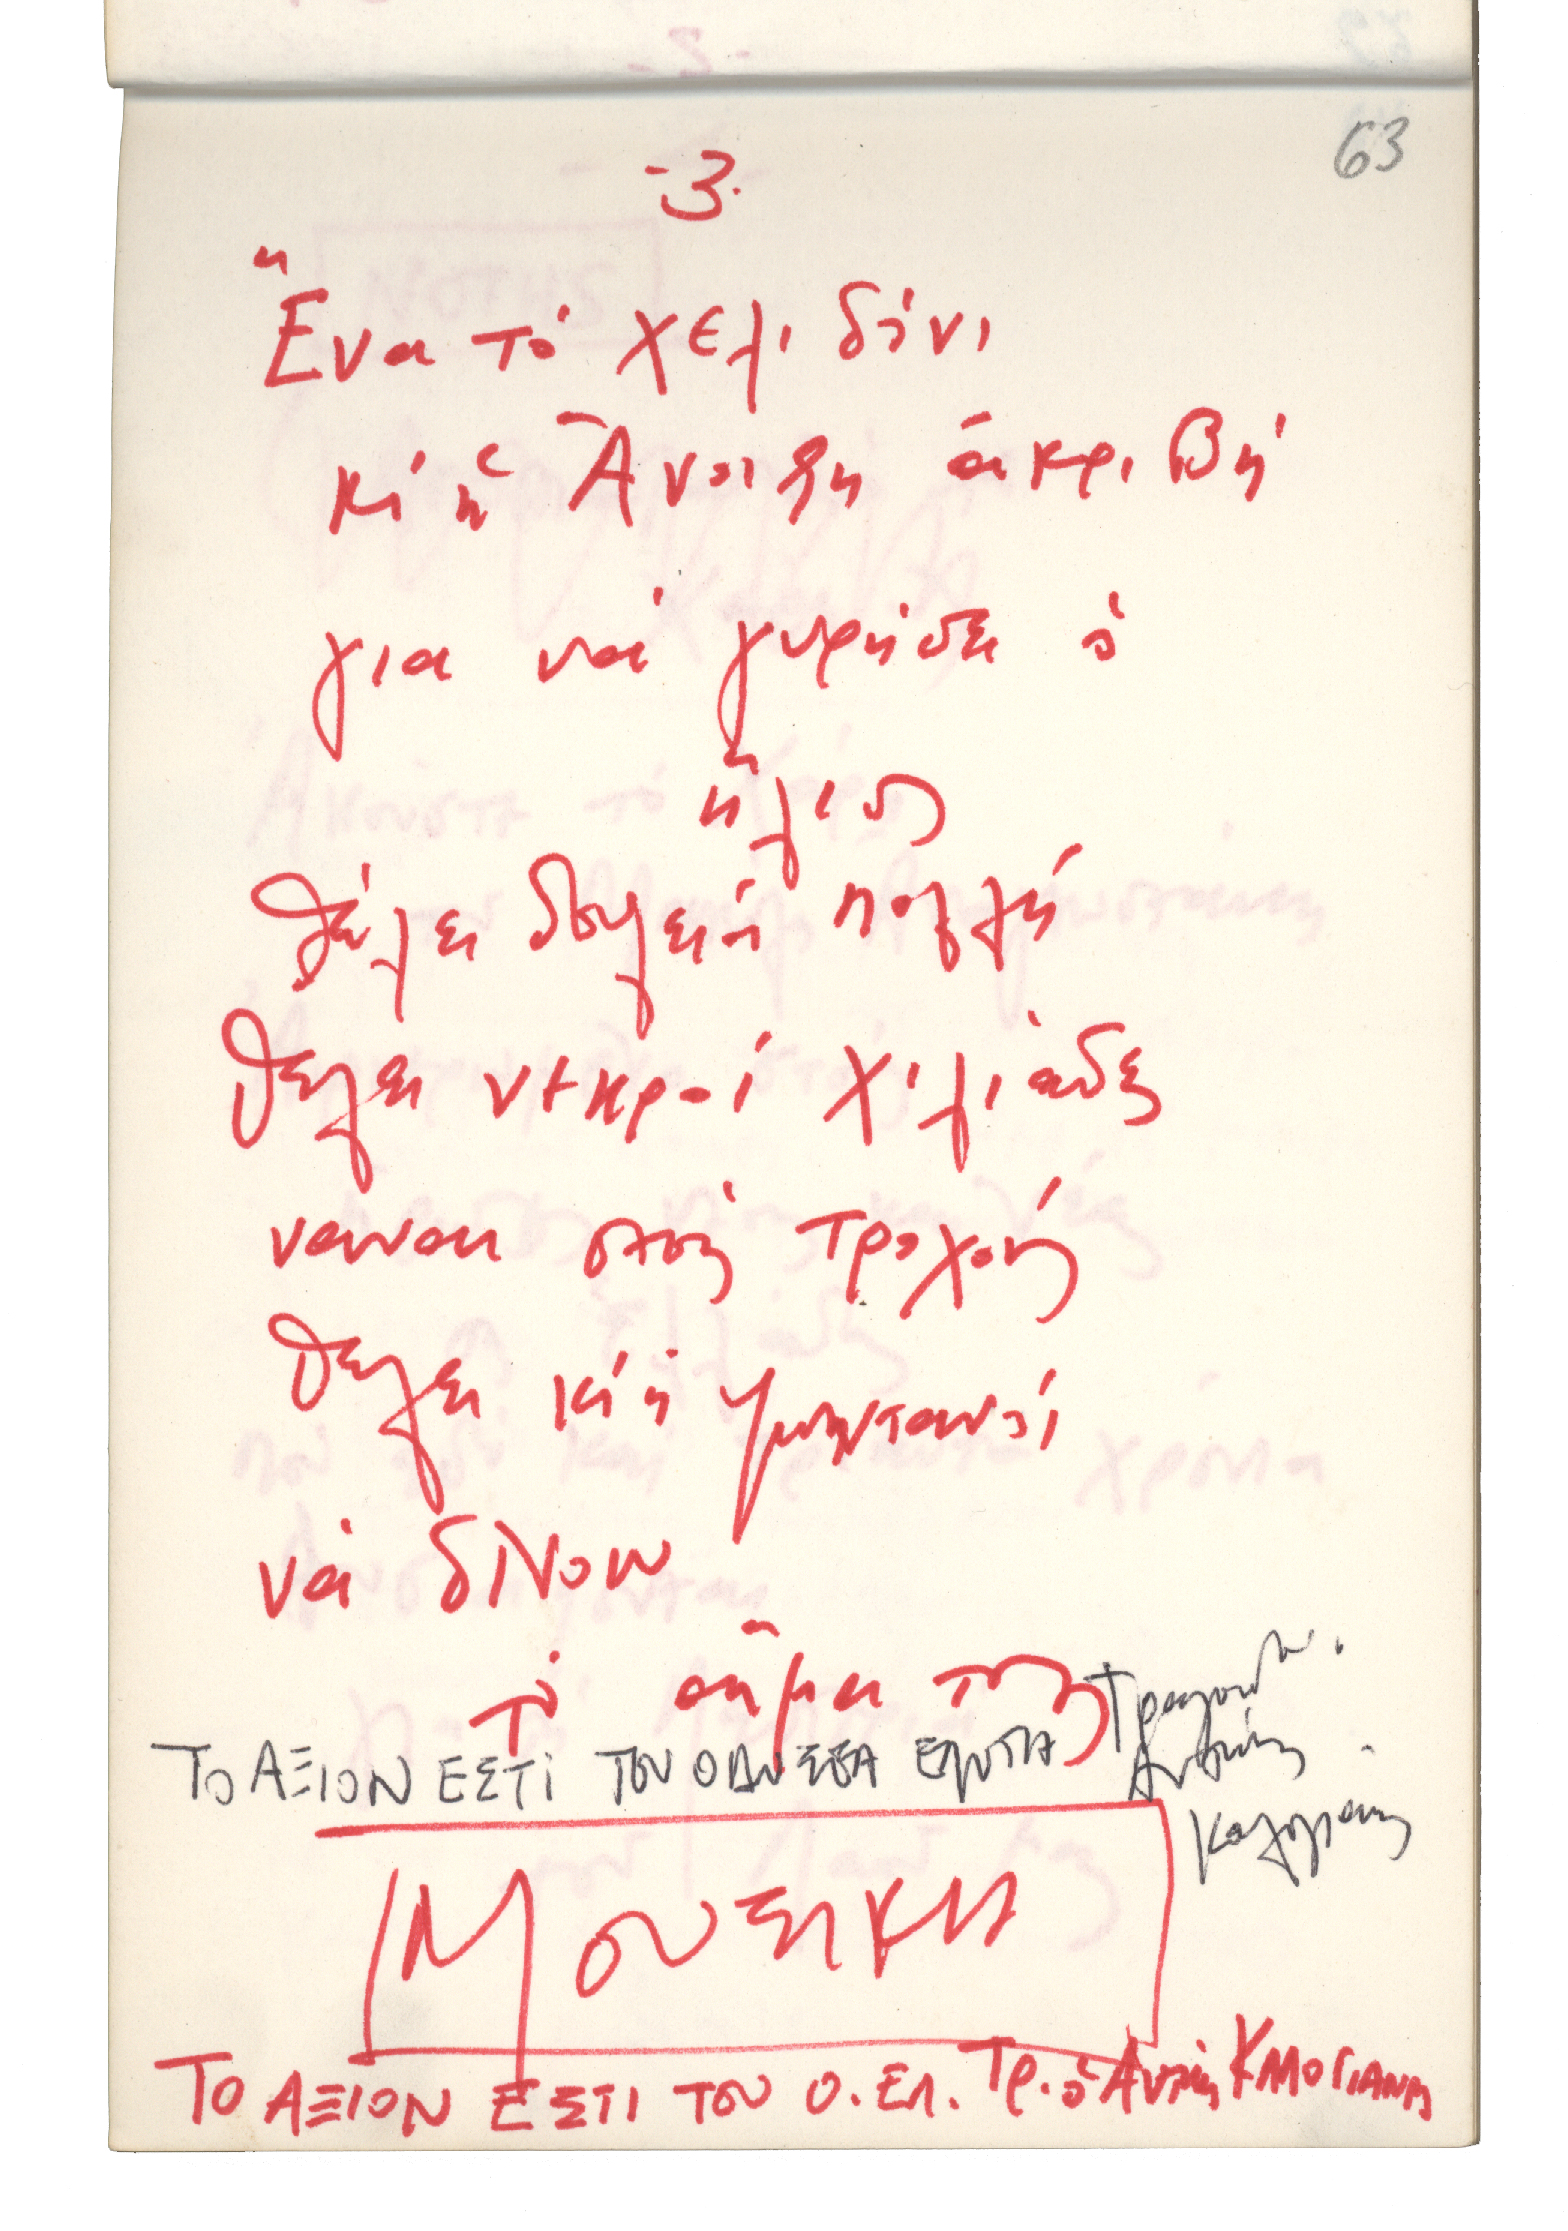 63
-3.
Ἕνα τό χελιδόνι
κί ἡ Ἄνοιξη ἀκριβή
για νά γυρίσει ὁ
ἥλιος
θέλει δουλειά πολλή
θέλει νεκροί χιλιάδες
ναναι στούς τροχούς
θέλει κί οἱ ζωντανοί
νά δίνουν
τό αἷμα τους
Τραγουδ.
ΤΟ ΑΞΙΟΝ ΕΣΤΙ ΤΟΥ ΟΔΥΣΣΕΑ ΕΛΥΤΗ
Αντώνης
Καλογιάννης
ΜΟΥΣΙΚΗ
ΤΟ ΑΞΙΟΝ ΕΣΤΙ ΤΟΥ Ο. ΕΛ. ΤΡ. ὁ Αντώνης ΚΑΛΟΓΙΑΝΝΗΣ